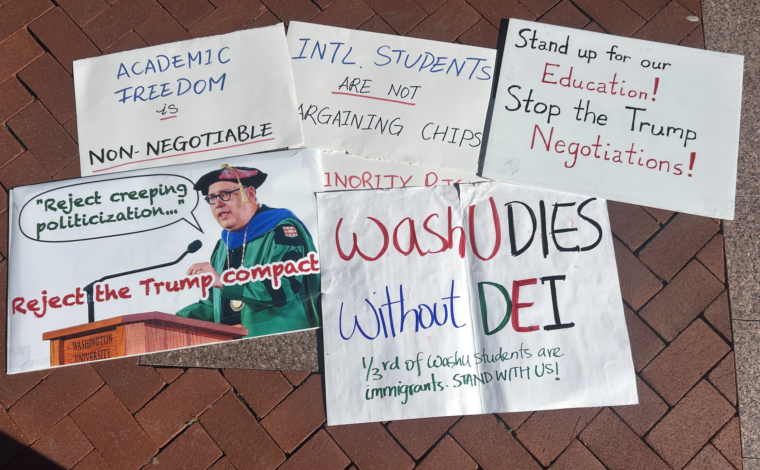 ACADEMIC
FREEDOM
is
NON-NEGOTIABLE
INTL. STUDENTS
ARE NOT
ARGAINING CHIPS
INORITY
Stand up for our
Education!
Stop the Trump
Negotiations!
"Reject creeping
politicization..."
Reject the Trump compact
WASHINGTON
UNIVERSITY
WashU DIES
Without DEI
1/3rd of WashU students are
immigrants. STAND WITH US!